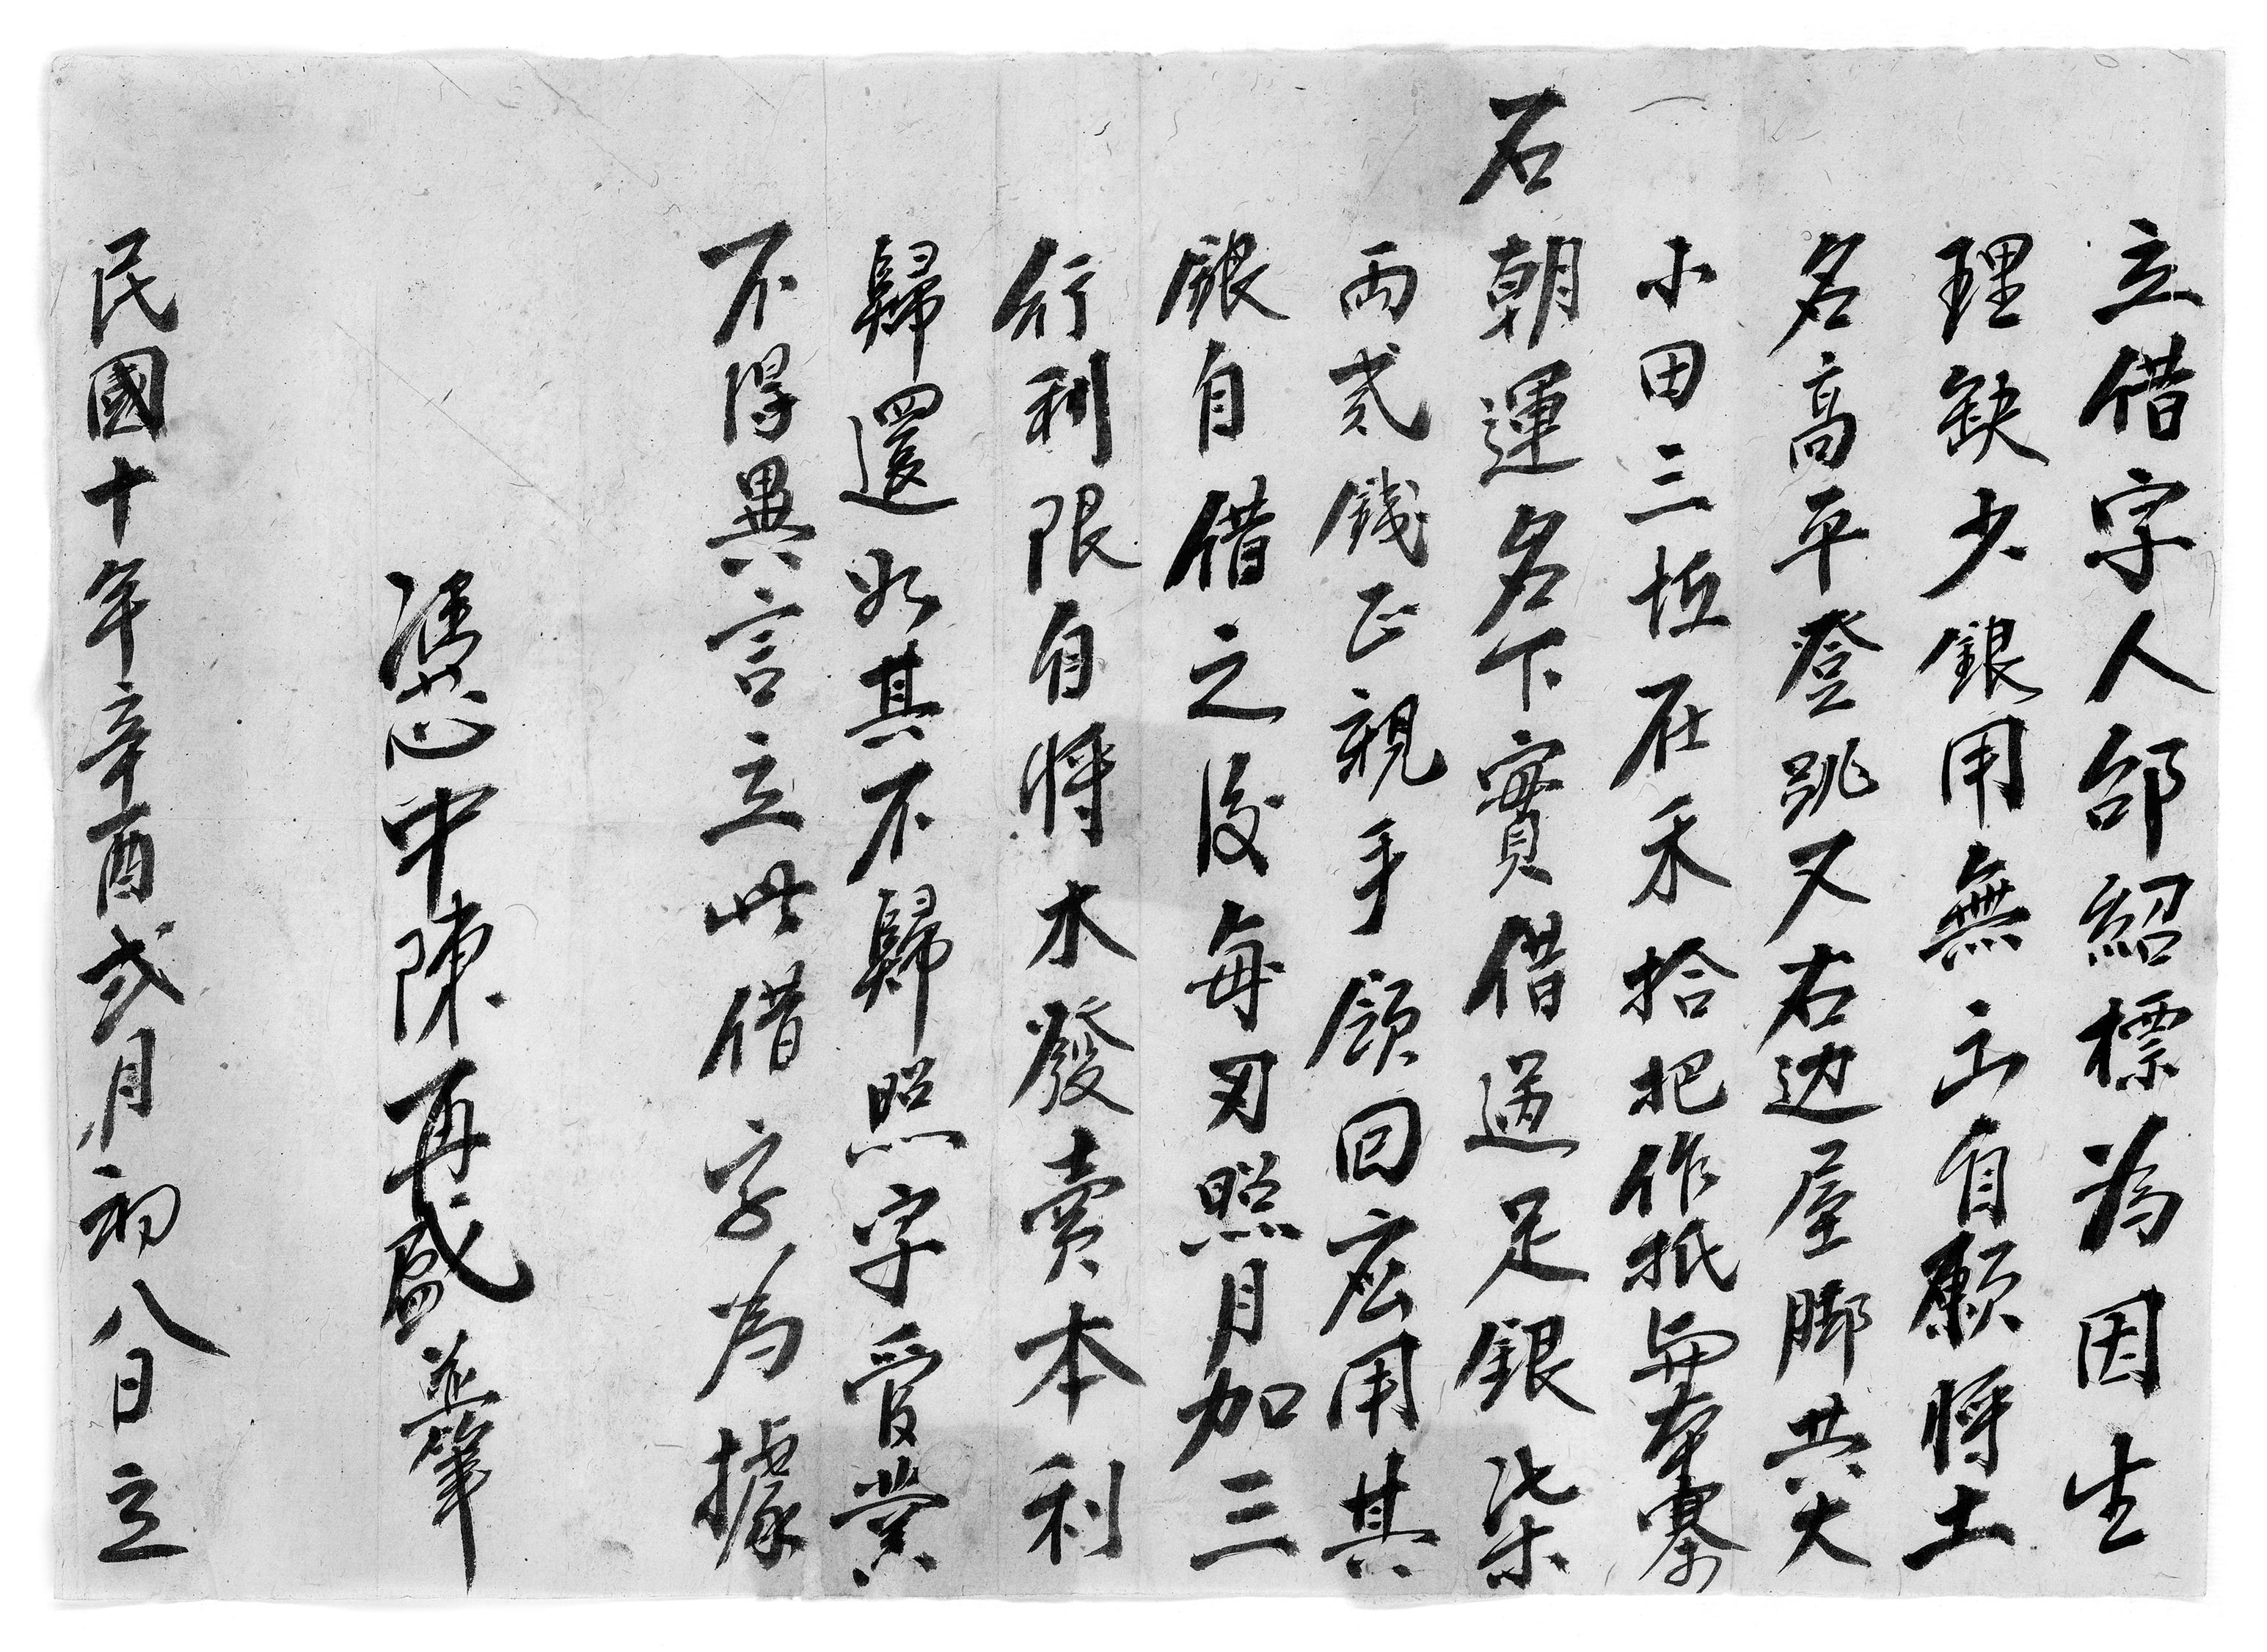 立借字人邰紹標為因生
理缺少銀用無出自願將土
名高平登跳又右边屋脚共大
小田三坵在禾拾把作抵與本寨
石朝運名下實借過足銀柒
両貳錢正親手領回應用其
銀自借之後每刄照月加三
行利限自將木發賣本利
歸還如其不歸照字管業
不得異言立此借字為據
憑中陳再盛並筆
民國十年辛酉貳月初八日立